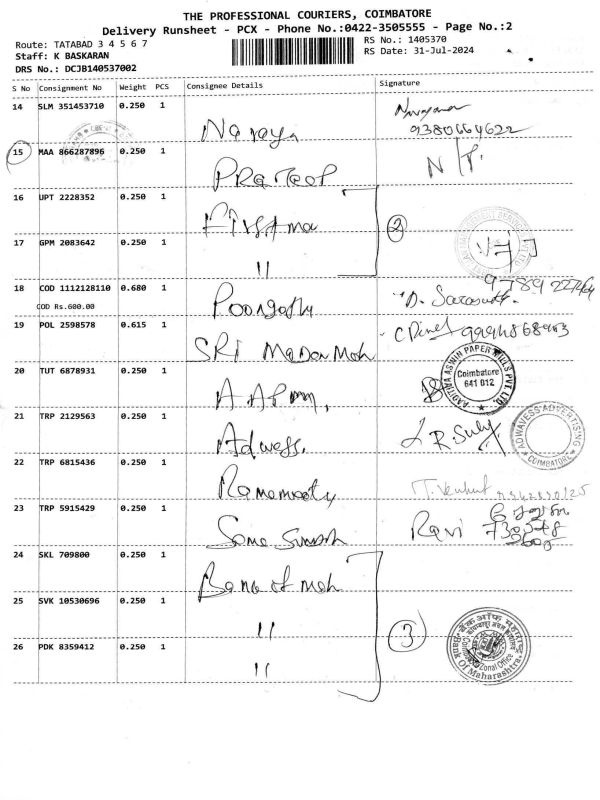 THE PROFESSIONAL COURIERS, COIMBATORE
Delivery Runsheet - PCX - Phone No.:0422-3505555 - Page No.:2
Route: TATABAD 3 4 5 6 7
RS No.: 1405370
Staff: K BASKARAN
RS Date: 31-Jul-2024
DRS No.: DCJB140537002
S No Consignment No Weight PCS Consignee Details Signature
14 SLM 351453710 0.250 1 Naraya Narayanan
9380664622
15 MAA 866287896 0.250 1 PRaTeeP N/T.
16 UPT 2228352 0.250 1 Firstma
2
17 GPM 2083642 0.250 1 "
18 COD 1112128110 0.680 1 Poongothy
COD Rs.600.00
19 POL 2598578 0.615 1 SRI Madan Moh
20 TUT 6878931 0.250 1
AADITYA ASWIN PAPER MILLS PVT. LTD.
Coimbatore
641 012
21 TRP 2129563 0.250 1 Adwess.
ADWAVESS ADVERTISING
COIMBATORE
22 TRP 6815436 0.250 1 Ramamooty
23 TRP 5915429 0.250 1 Soma Sundar Ravi
24 SKL 709800 0.250 1 Bank of mah
25 SVK 10530696 0.250 1 "
3
26 PDK 8359412 0.250 1 "
बैंक ऑफ महाराष्ट्र
Zonal Office
Bank Of Maharashtra